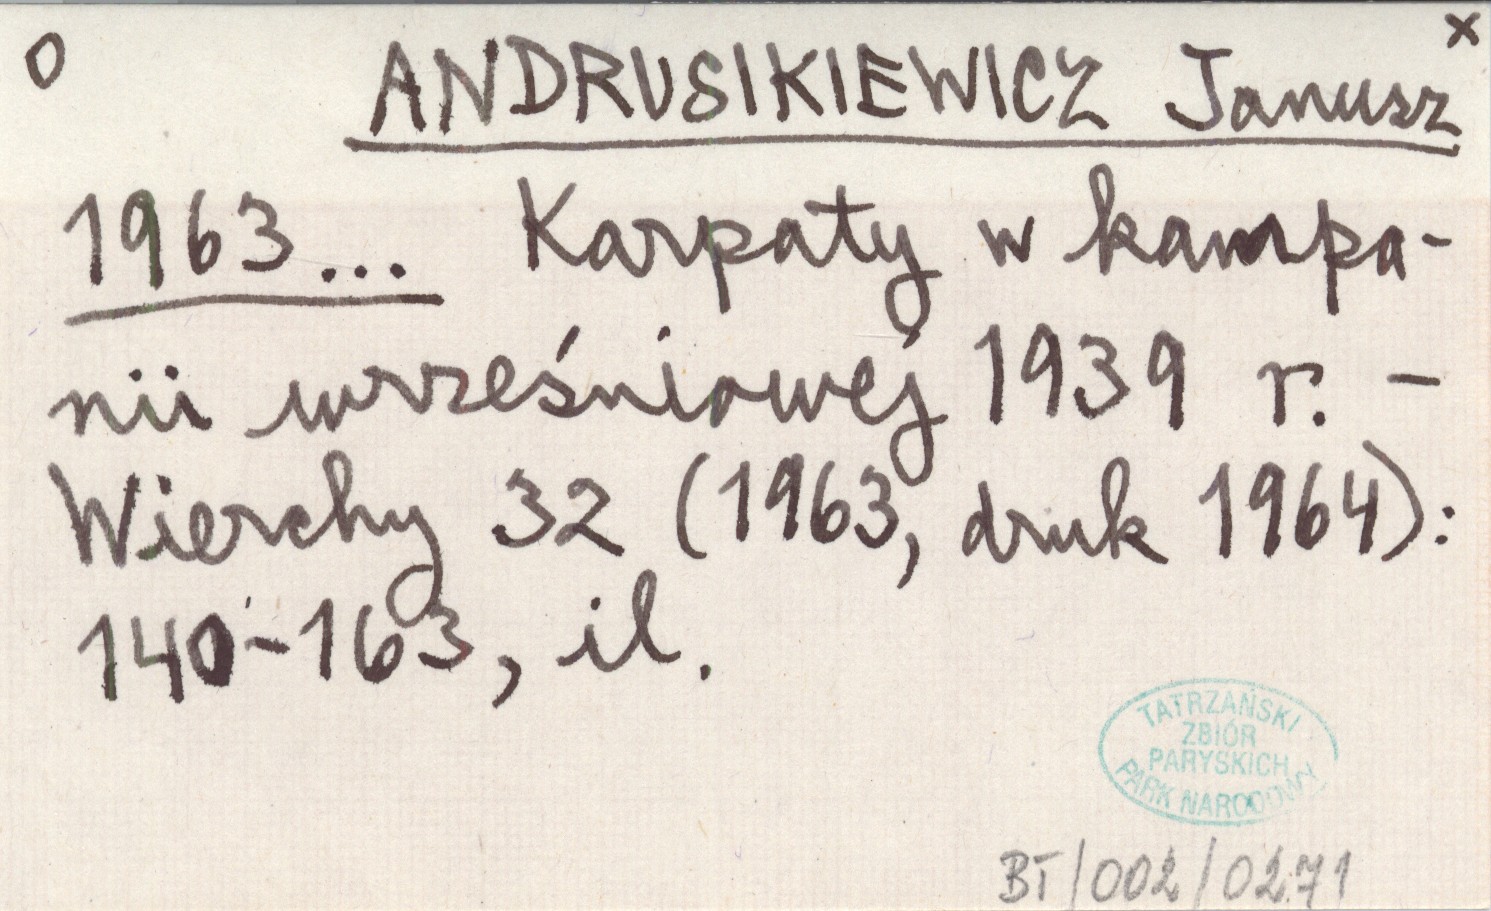 O ANDRUSIKIEWICZ Janusz x
1963... Karpaty w kampa-
nii wrześniowej 1939 r. -
Wierchy 32 (1963, druk 1964):
140-163, il.
TATRZAŃSKI
ZBIÓR
PARYSKICH
PARK NARODOWY
BT/002/0271